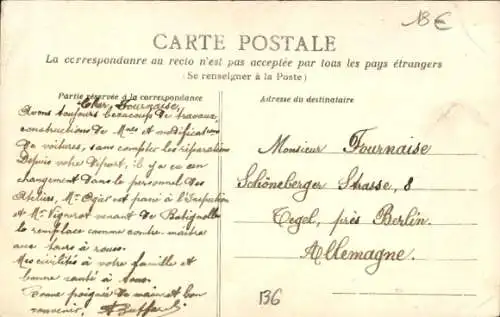 18€
CARTE POSTALE
La correspondanre au recto n'est pas acceptée par tous les pays étrangers
(Se renseigner à la Poste)
Partie réservée à la correspondance
Cher Fournaise,
Avons toujours beaucoup de travaux,
constructions de Mnes et modifications
de voitures, sans compter les réparations
Depuis votre départ, il y a eu un
changement dans le personnel des
Ateliers, Mr Ogier est passé à l'Inspection
et Mr Vignerot venant de Batignolles
le remplace comme contre-maître
aux tours à roues.
Mes civilités à votre famille et
bonne santé à tous.
Bonne poignée de main et bon
souvenir,
Adresse du destinataire
Monsieur Fournaise
Schöneberger Strasse, 8
Tegel, près Berlin.
Allemagne.
136